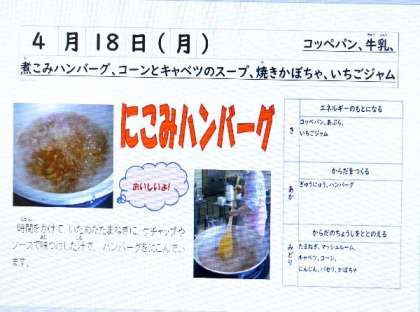 4月18日(月)
コッペパン、牛乳、
煮こみハンバーグ、コーンとキャベツのスープ、焼きかぼちゃ、いちごジャム
にこみハンバーグ
おいしいよ!
時間をかけて、いためたたまねぎに、ケチャップや
ソースで味つけした汁で、ハンバーグをにこんでい
ます。
エネルギーのもとになる
き
コッペパン、あぶら、
いちごジャム
からだをつくる
あか
ぎゅうにゅう、ハンバーグ
からだのちょうしをととのえる
みどり
たまねぎ、マッシュルーム、
キャベツ、コーン、
にんじん、パセリ、かぼちゃ